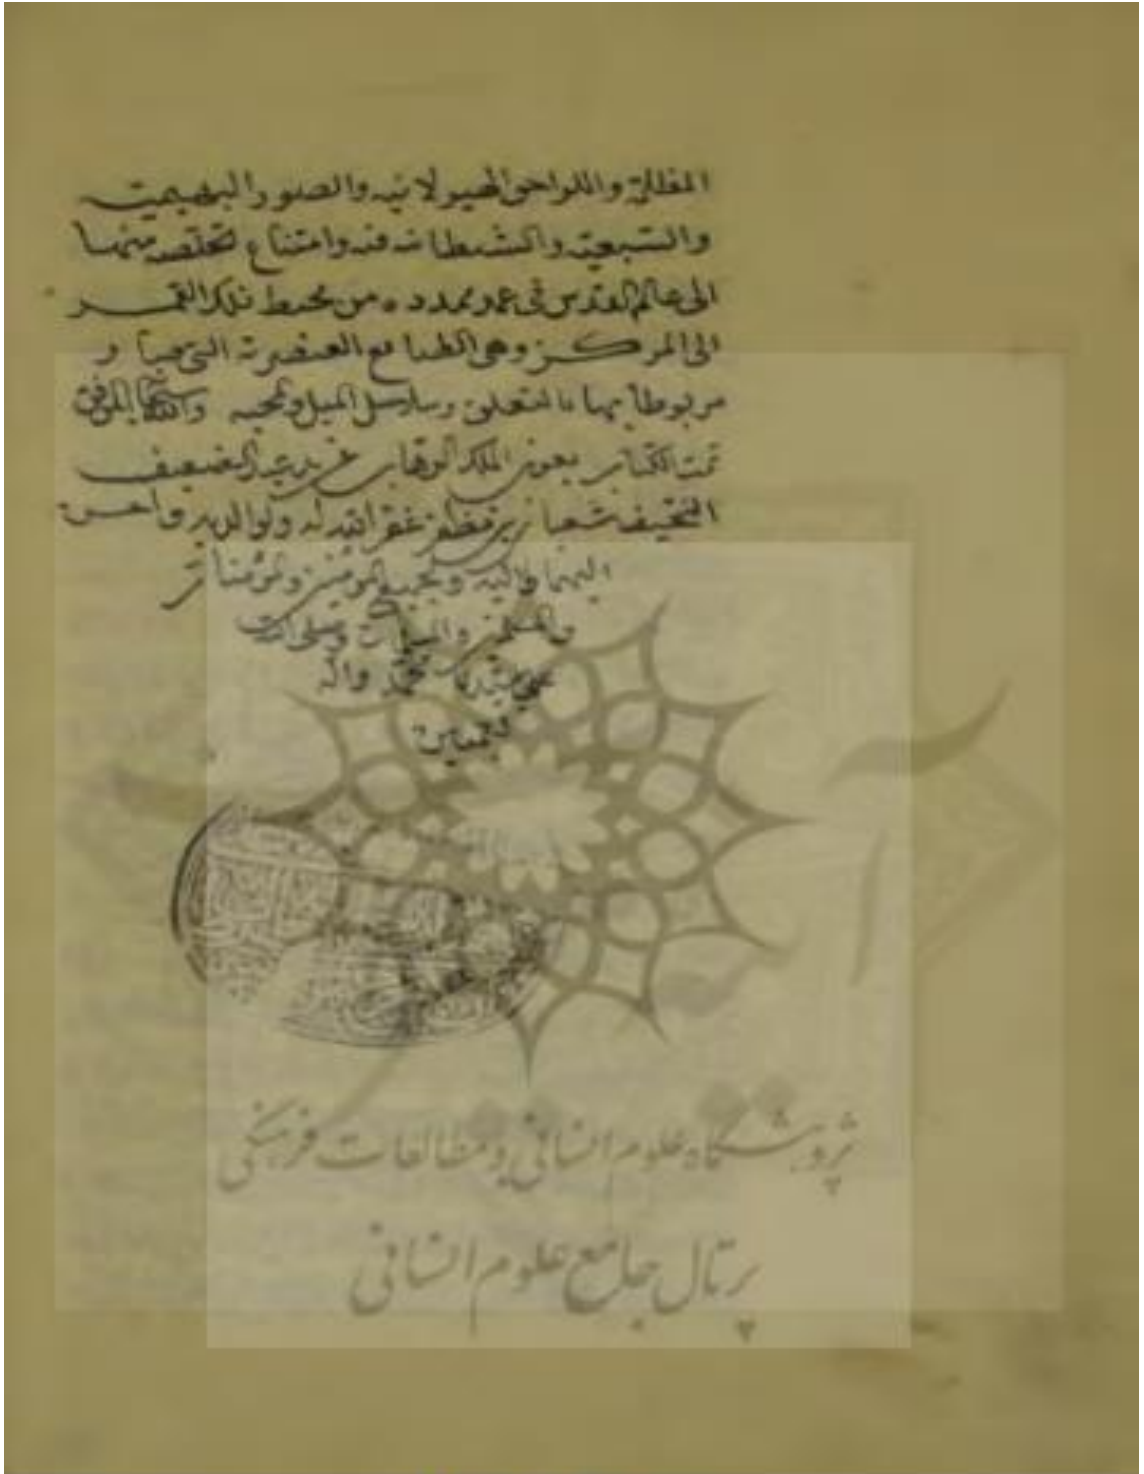 المظلة واللواحق الهيولانيه والصور البهيمية
والسبعية والشيطانيه فيه وامتناع تخلصه منها
الى عالم القدس فى عمد ممدده من محيط فلك القمر
الى المركز وهى الطبايع العنصرية التى
مربوطا بها بالتعلق وسلاسل الميل والمحبه والله الموفق
تمت الكتاب بعون الملك الوهاب يد الضعيف
النحيف شعبان بن مظفر غفر الله له ولوالديه واحسن
اليهما واليه ولجميع المومنين والمومنات
والمسلمين والمسلمات وصلى الله
على سيدنا محمد واله
اجمعين
پژوهشگاه علوم انسانی و مطالعات فرهنگی
پرتال جامع علوم انسانی